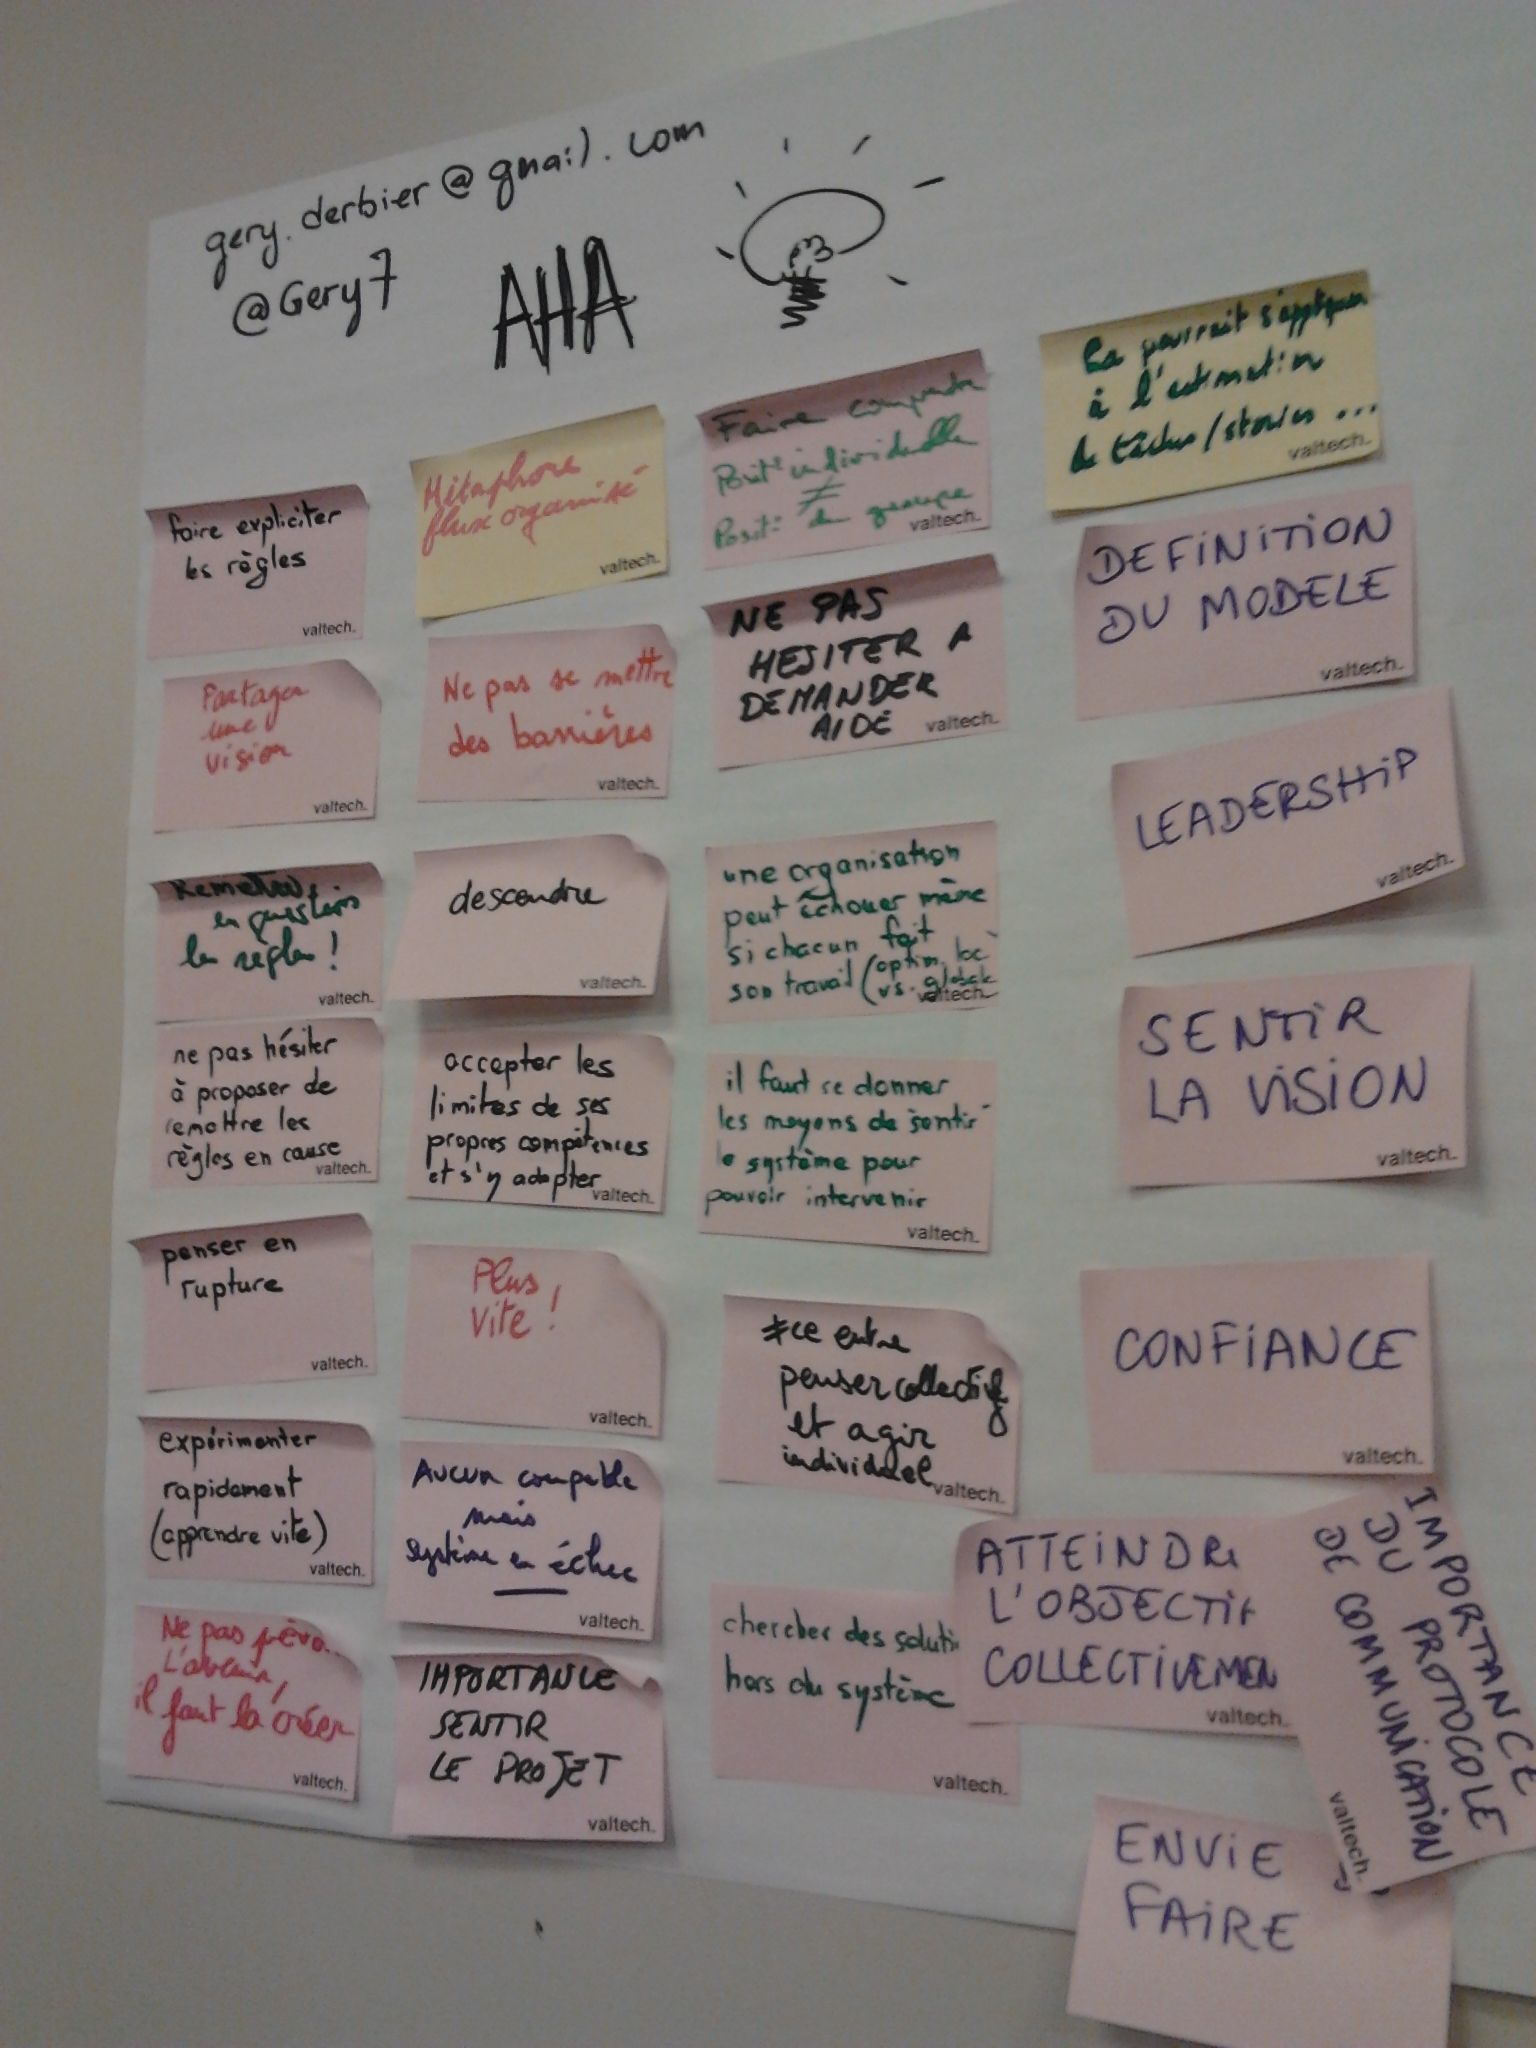 gery.derbier@gmail.com
@Gery7
AHA
faire expliciter
les règles
valtech.
Partager
une
vision
valtech.
Remettre
en question
les règles !
valtech.
ne pas hésiter
à proposer de
remettre les
règles en cause
valtech.
penser en
rupture
valtech.
expérimenter
rapidement
(apprendre vite)
valtech.
Ne pas
L'avenir,
il faut la créer
valtech.
Métaphore
flux organisé
valtech.
Ne pas se mettre
des barrières
valtech.
descendre
valtech.
accepter les
limites de ses
propres compétences
et s'y adapter
valtech.
Plus
Vite !
valtech.
Aucun coupable
mais
système en échec
valtech.
IMPORTANCE
SENTIR
LE PROJET
valtech.
Faire comprendre
Posit° individuelle
≠
Posit° du groupe
valtech.
NE PAS
HESITER A
DEMANDER
AIDE
valtech.
une organisation
peut échouer même
si chacun fait
son travail (optim. loc
vs. globale
valtech.
il faut se donner
les moyens de sentir
le système pour
pouvoir intervenir
valtech.
≠ce entre
penser collectif
et agir
individuel
valtech.
chercher des soluti
hors du système
valtech.
Ca pourrait s'appliquer
à l'estimation
de tâches/stories ...
valtech.
DEFINITION
DU MODELE
valtech.
LEADERSHIP
valtech.
SENTIR
LA VISION
valtech.
CONFIANCE
valtech.
ATTEINDRE
L'OBJECTIF
COLLECTIVEMEN
valtech.
IMPORTANCE
DU PROTOCOLE
DE COMMUNICATION
valtech.
ENVIE
FAIRE